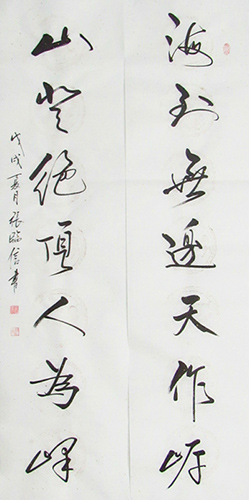 海到無邊天作岸
山登絕頂人為峰
戊戌夏月張臨信書